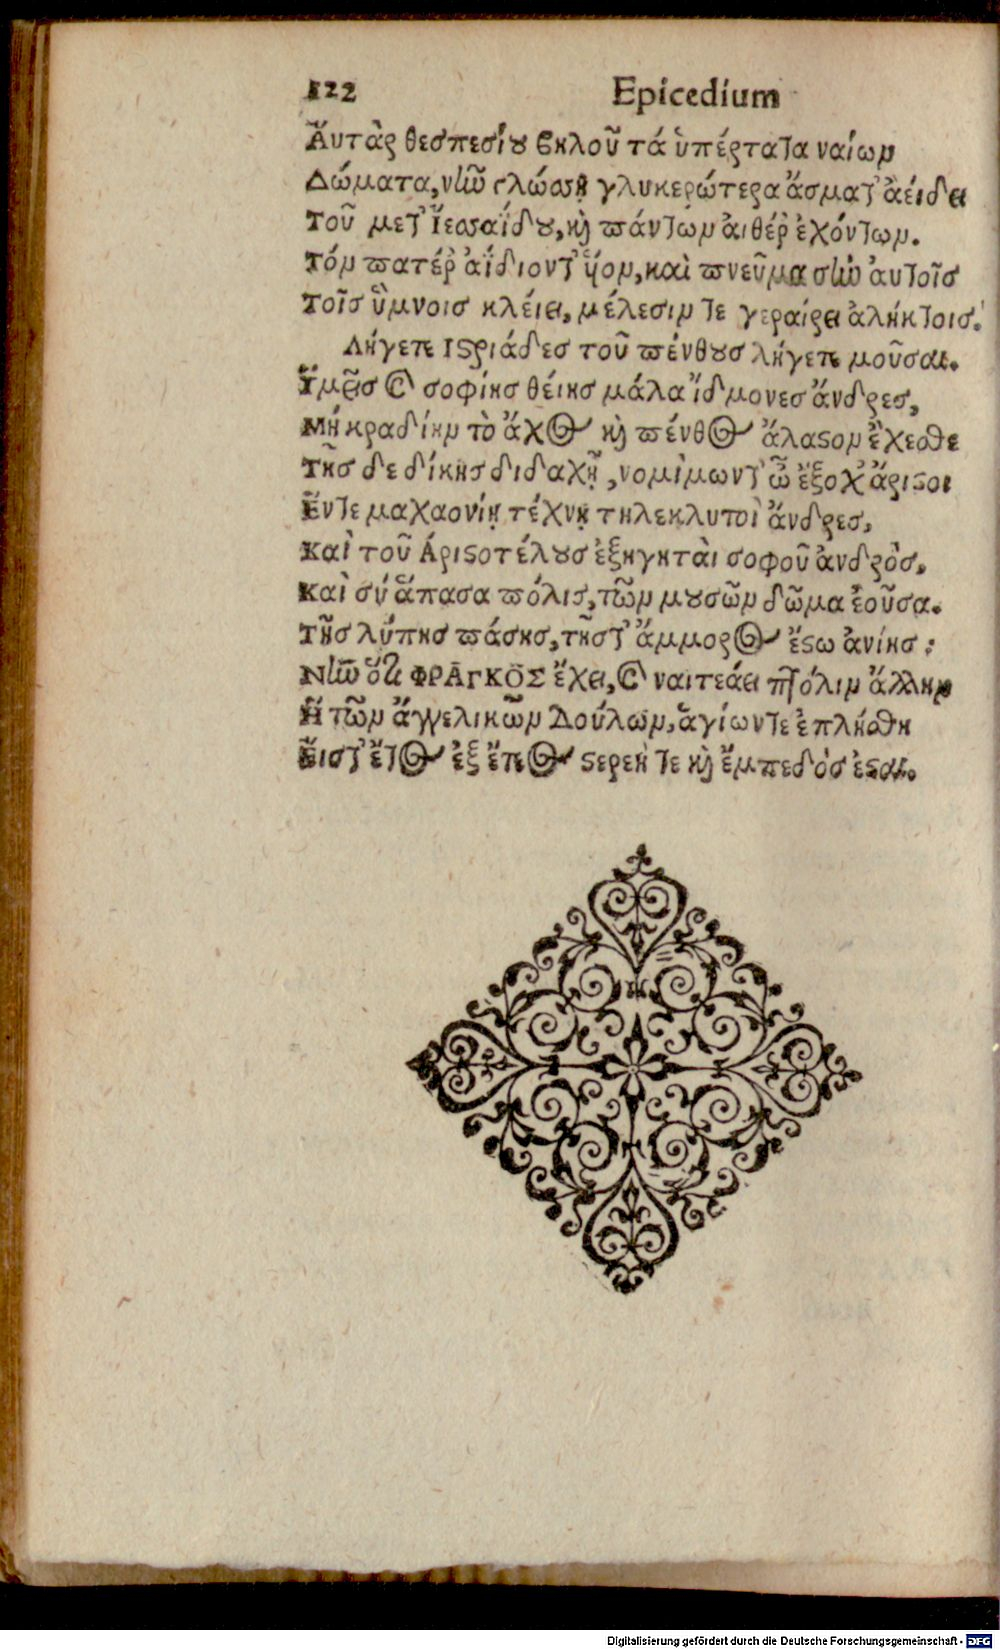 122 Epicedium
Ἀυτὰρ θεσπεσίȣ βηλοῦ τά ὑπέρτατα ναίων
Δώματα, νῦν γλώσσῃ γλυκερώτερα ἄσματ' ἀείδει
Τοῦ μετ' Ἰεσσαΐδȣ, καὶ πάντων ἀιθέρ' ἐχόντων.
Τόν πατέρ' ἀΐδιοντ' ὕον, καὶ πνεῦμα σὺν ἀυτοῖς
Τοῖς ὕμνοις κλέιει, μέλεσιν τε γεραίρει ἀλήκτοις.
Λήγετε Ιϛριάδες τοῦ πένθȣς λήγετε μοῦσαι.
Ὑμεῖς καὶ σοφίης θέιης μάλα ἴδμονες ἄνδρες,
Μή κραδίην τὸ ἄχος καὶ πένθος ἄλαϛον ἔχεσθε
Τῆς δε δίκης διδαχῇ, νομίμωντ' ὦ ἔξοχ' ἄριϛοι
Ἔντε μαχαονίῃ τέχνῃ τηλεκλυτοὶ ἄνδρες,
Καὶ τοῦ Ἀριϛοτέλȣς ἐξηγηταὶ σοφοῦ ἀνδρός,
Καὶ σύ ἅπασα πόλις, τῶν μȣσῶν δῶμα ἐοῦσα.
Τῆς λύπης πάσης, τῆστ' ἄμμορος ἔϛω ἀνίης:
Νῦν ὅτι ΦΡΑΓΚΟΣ ἔχει, καὶ ναιετάει πτόλιν ἄλλην
Ἣ τῶν ἀγγελικῶν Δούλων, ἁγίωντε ἐπλήσθη
Ἔιστ' ἔτος ἐξ ἔτεος ϛερεή τε καὶ ἔμπεδός ἐϛαι.
Digitalisierung gefördert durch die Deutsche Forschungsgemeinschaft - DFG